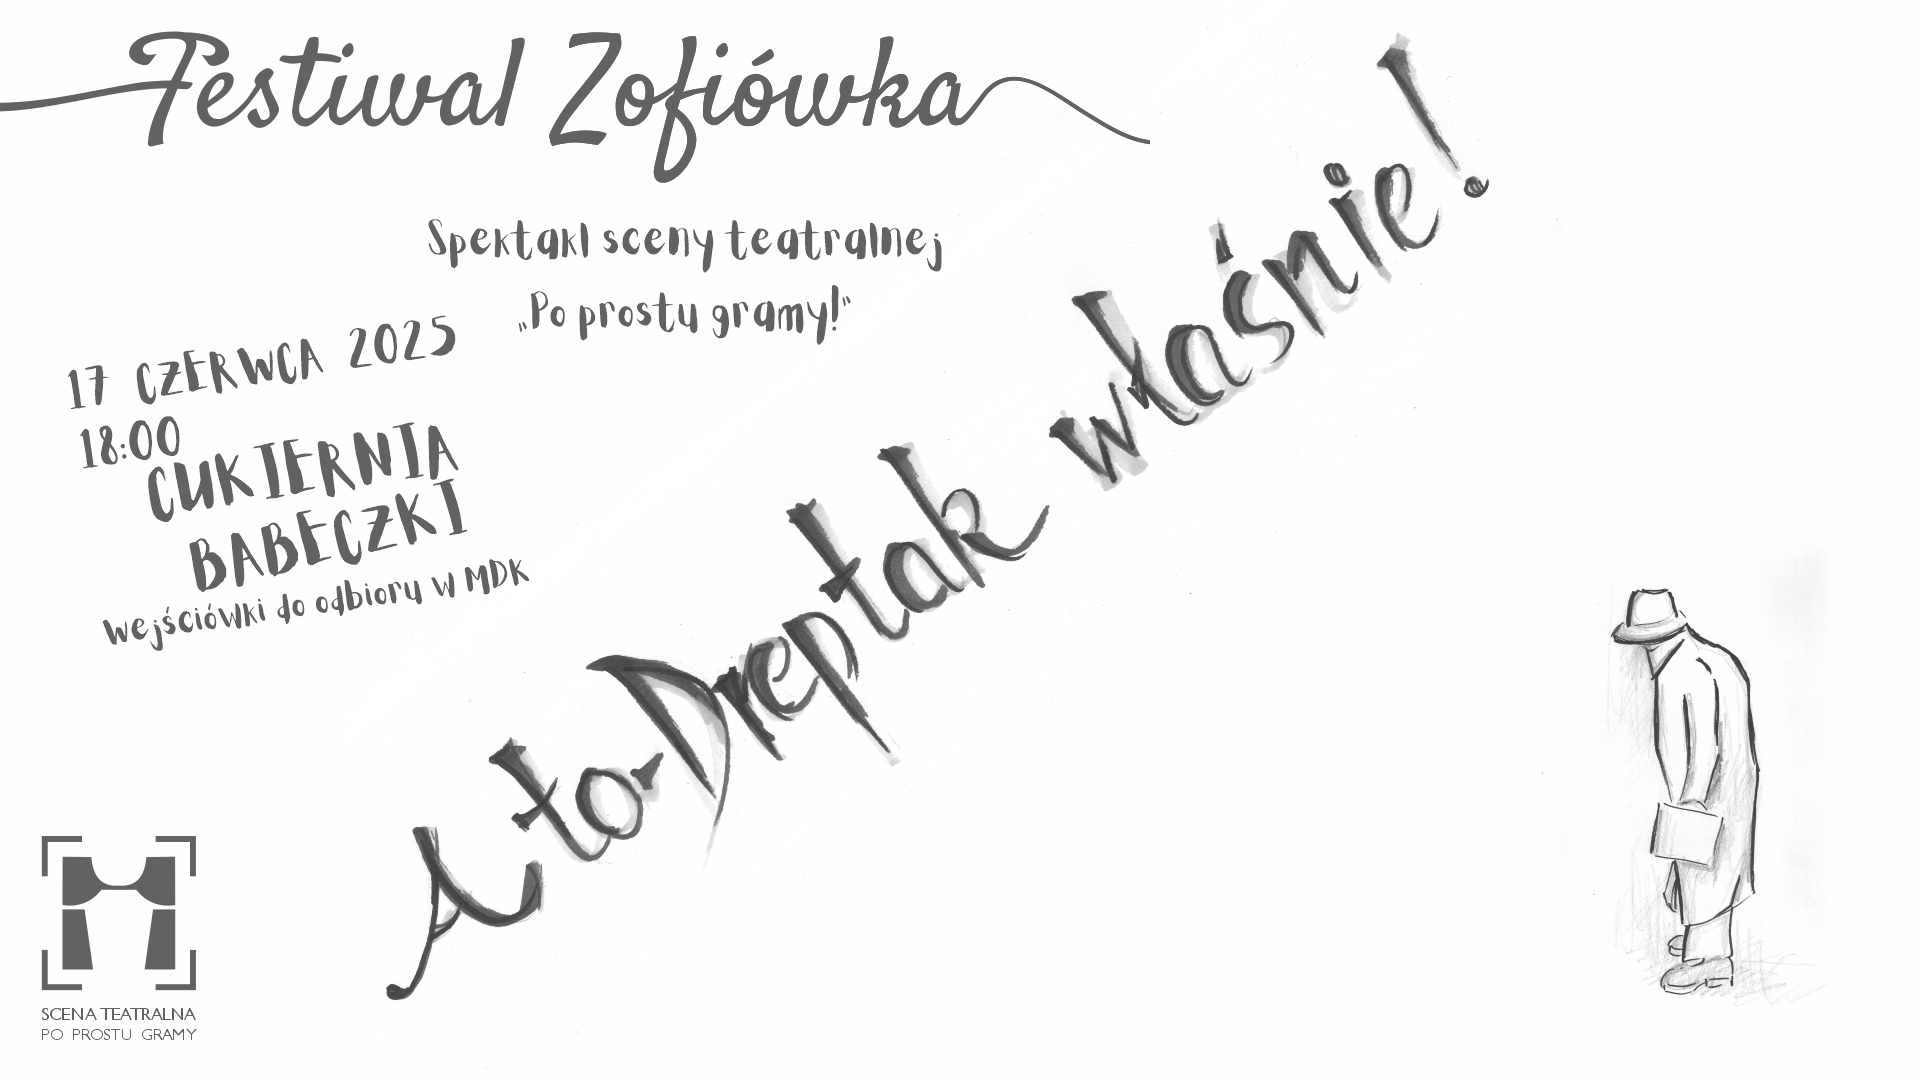 Festiwal Zofiówka
Spektakl sceny teatralnej
„Po prostu gramy!”
17 CZERWCA 2025
18:00
CUKIERNIA
BABECZKI
wejściówki do odbioru w MDK
A to-Dreptak właśnie!
SCENA TEATRALNA
PO PROSTU GRAMY